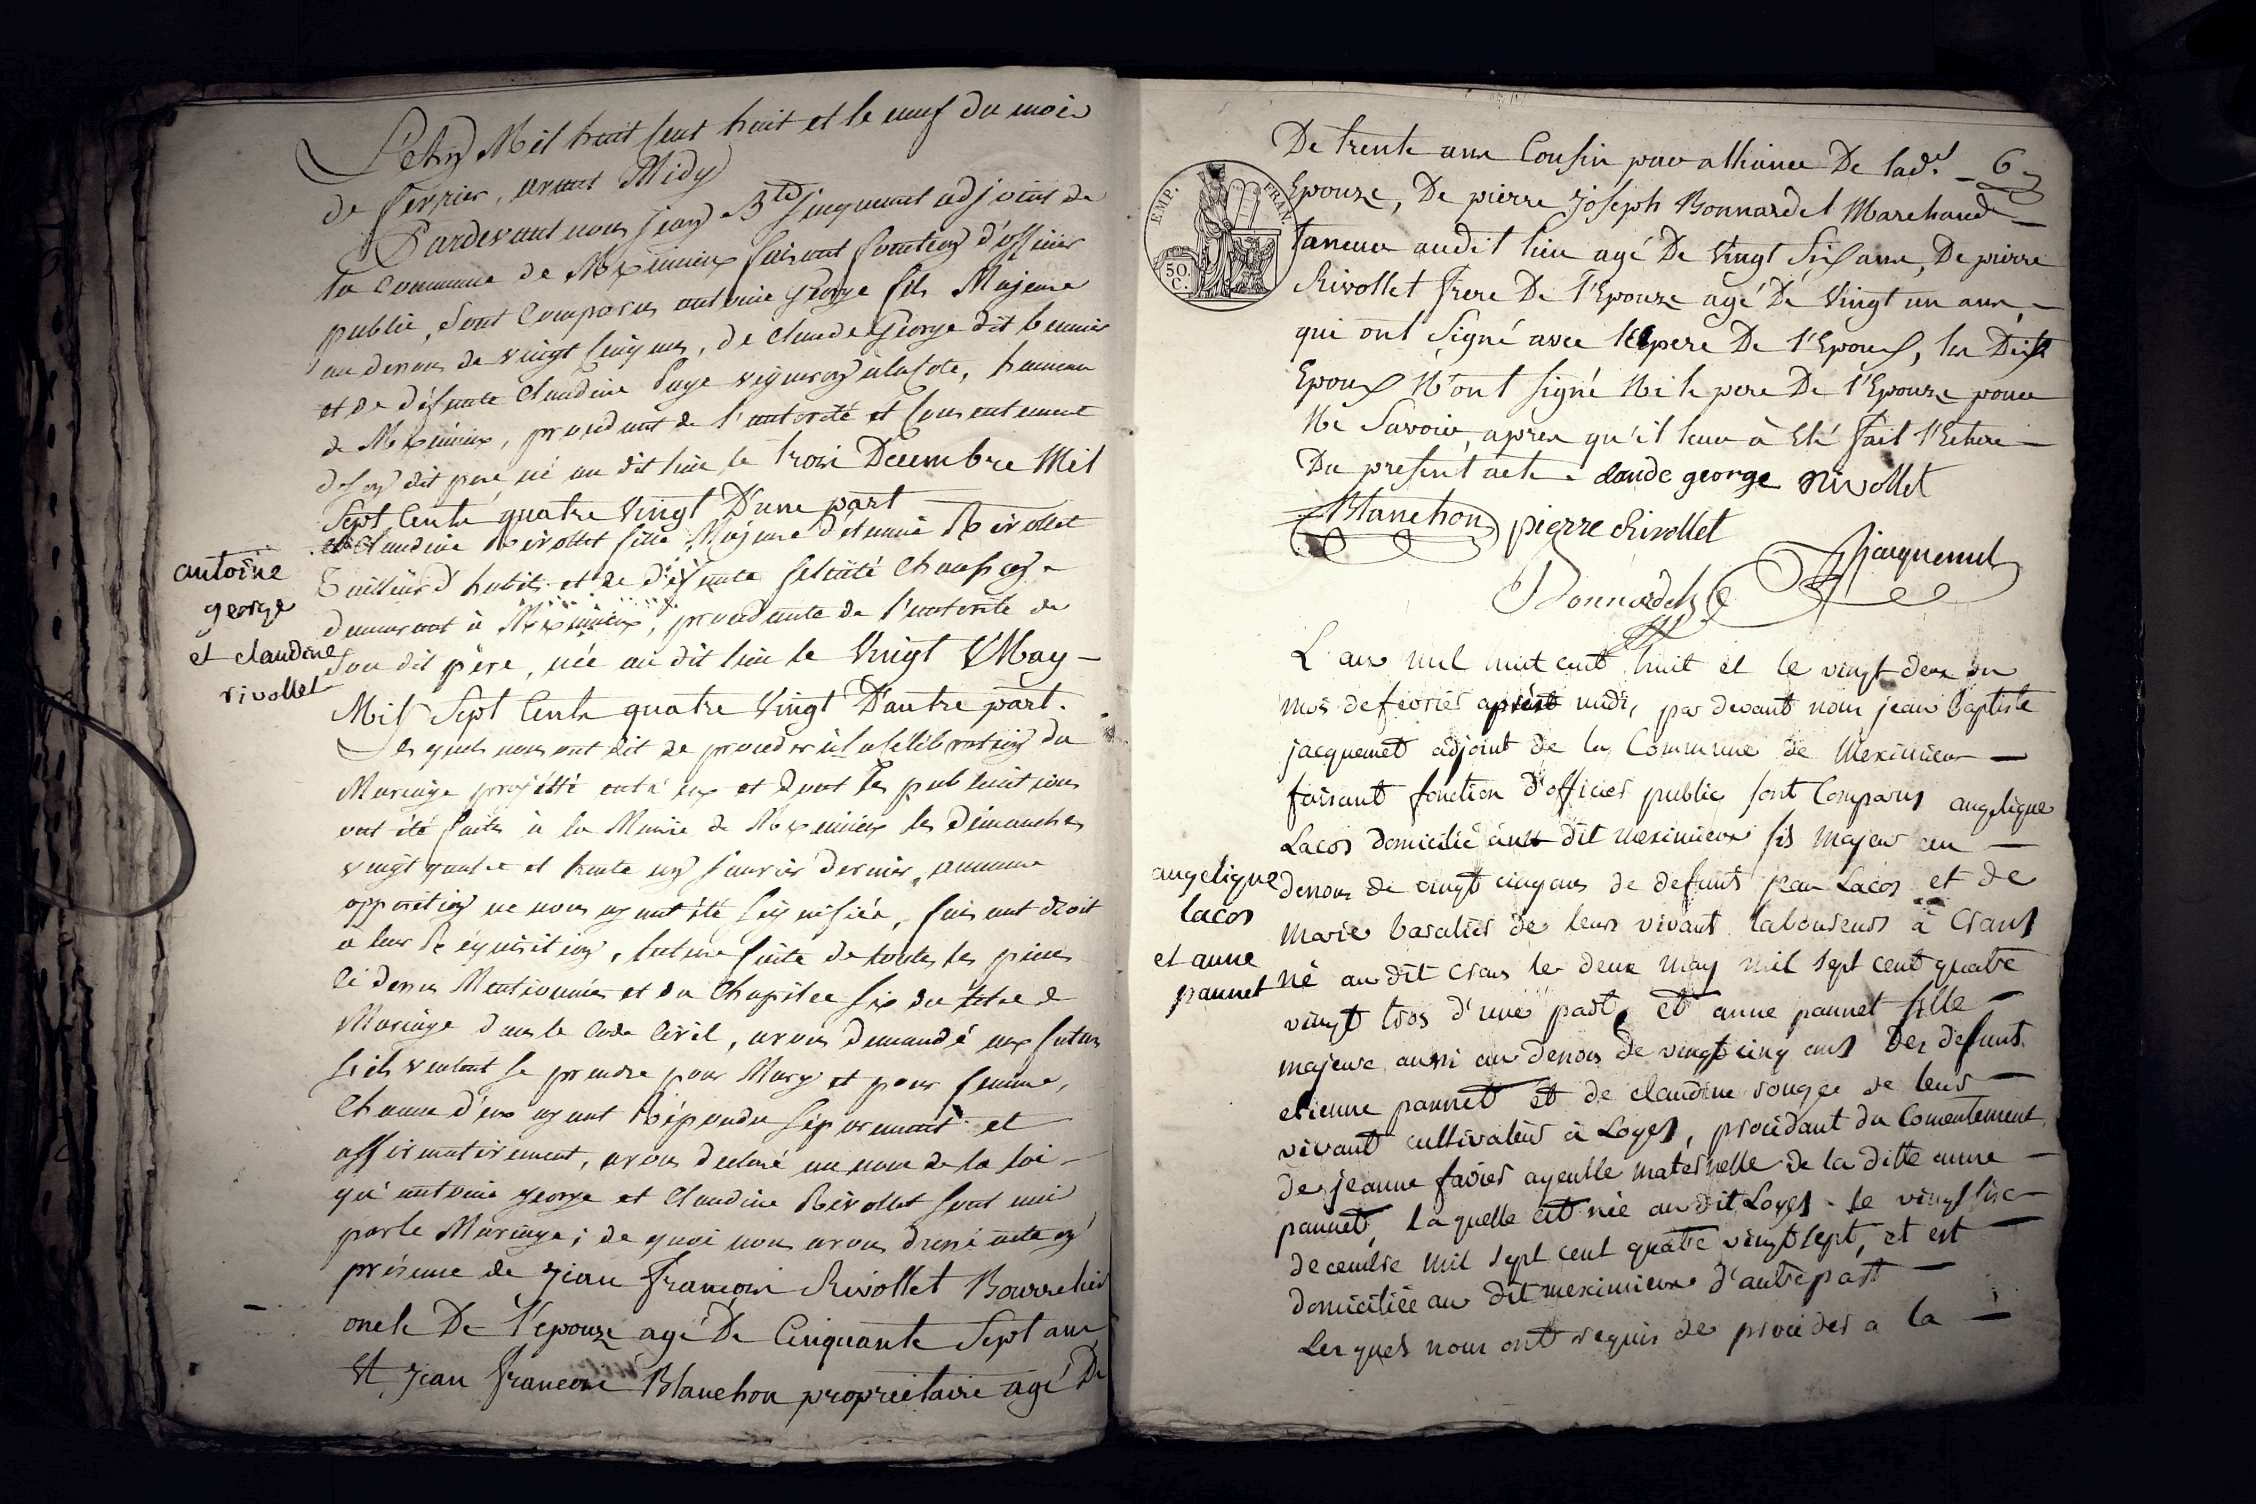 L'an Mil huit cent huit et le neuf du mois
de fevrier, avant Midy
Pardevant nous jean Bte jacquemet adjoint de
la Commune de Meximieux faisant fonction d'officier
public, sont Comparus antoine george fils Majeur
au dessus de vingt cinq ans, de Claude George dit
et de défunte Claudine Page vigneron à la Cote, hameau
de Meximieux, procedant de l'autorité et Consentement
de son dit pere né au dit lieu le trois Decembre Mil
Sept Cents quatre Vingt D'une part
et Claudine Rivollet fille Majeure d'etienne Rivollet
Tailleur d'habits et de défunte felicité
demeurant à Meximieux, procedante de l'autorité de
son dit père, née au dit lieu le Vingt May –
Mil Sept Cents quatre Vingt D'autre part.
Les quels nous ont dit de proceder à la Célébration du
Mariage projetté entr'eux et dont les publications
ont été faites à la Mairie de Meximieux les dimanches
vingt quatre et trente un janvier dernier, aucune
opposition ne nous ayant été signifiée, faisant droit
à leur Réquisition, lecture faite de toutes les pieces
ci dessus Mentionnées et du Chapitre six du titre de
Mariage dans le Code Civil, avons demandé aux futurs
s'ils veulent se prendre pour Mary et pour femme,
Chacun d'eux ayant Répondu séparement et
affirmativement, avons declaré au nom de la loi –
qu'antoine george et Claudine Rivollet sont unis
par le Mariage; de quoi nous avons dressé acte en
présence de jean françois Rivollet Bourrelier
oncle De l'epouze agé De Cinquante Sept ans
Et jean françois Blanchon proprietaire agé De
antoine
george
et claudine
rivollet
De trente ans Cousin par alliance De lad.
Epouze, De pierre joseph Bonnardel Marchand –
taneur audit lieu agé De Vingt Six ans, De pierre
Rivollet frere De l'Epouze agé De Vingt un ans, –
qui ont signé avec le pere De l'Epoux, les Dits
Epoux N'ont signé Ni le pere De l'Epouze pour
Ne Savoir, apres qu'il leur à Eté fait l'Ecture –
Du present acte. claude george Rivollet
Blanchon pierre Rivollet
Jacquemet
Bonnardel
EMP. FRAN.
50.
C.
L'an mil huit cent huit et le vingt deux du
mois de fevrier après midi, par devant nous jean Baptiste
jacquemet adjoint de la Commune de Meximieux –
faisant fonction d'officier public sont Comparus angelique
Lacos domicilié au dit meximieux fils majeur au –
dessus de vingt cinq ans de defunts jean Lacos et de
marie de leurs vivant laboureurs à Crans
né au dit Crans le deux may mil sept cent quatre
vingt trois d'une part, et anne pannet fille –
majeure aussi au dessus de vingt cinq ans Des defunts
etienne pannet et de claudine rougee de leur –
vivant cultivateur à Loyes, procédant du Consentement
de jeanne favier ayeulle maternelle de la ditte anne –
pannet, laquelle est née au dit Loyes le vingt six –
decembre mil sept cent quatre vingt sept, et est –
domiciliée au dit meximieux d'autre part –
Lesquels nous ont requis de proceder a la –
angelique
lacos
et anne
pannet